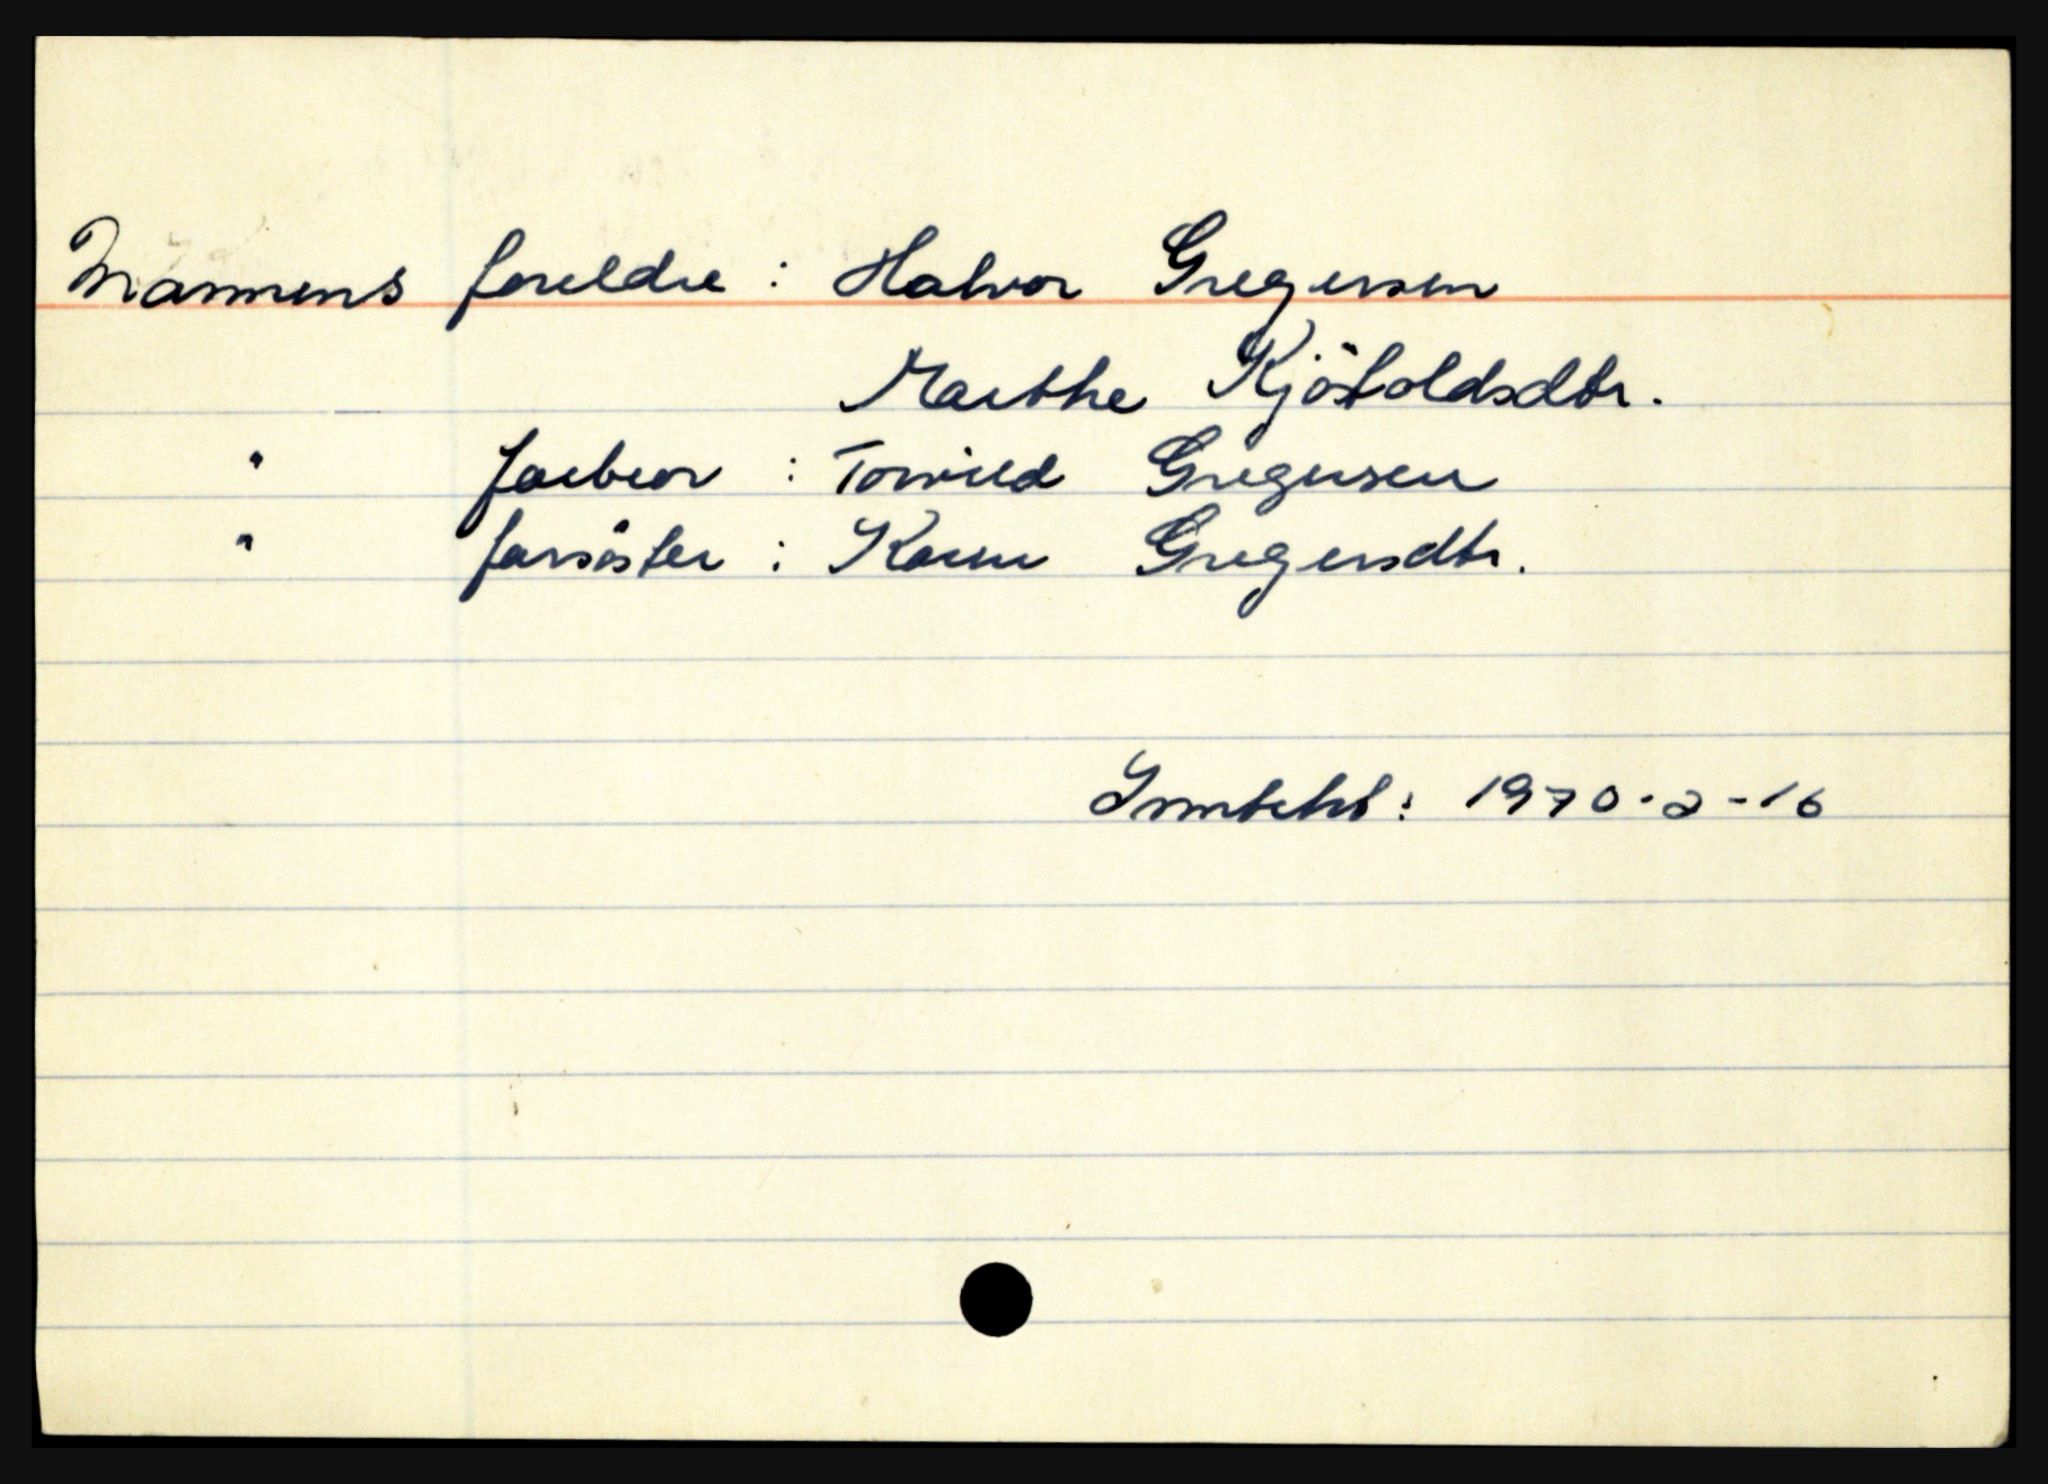 Mannens foreldre : Halvor Gregersen
Marthe Kjöstoldsdtr.
" farbror : Torvild Gregersen
" farsöster : Karen Gregersdtr.
Inntekt : 1970-2-16